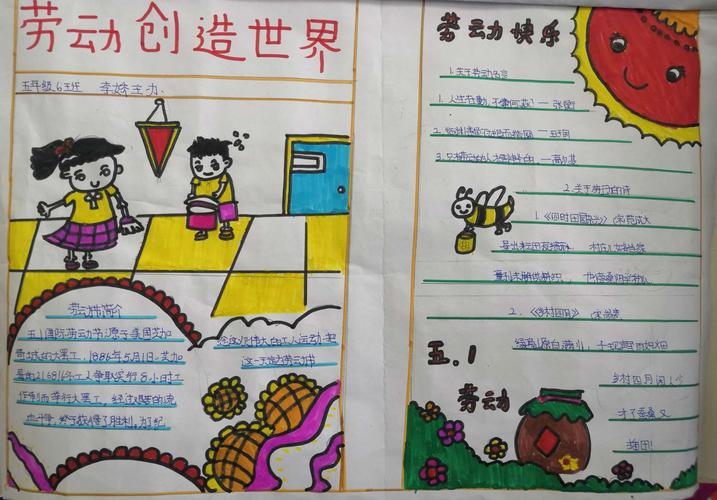 劳动创造世界
五年级6班 李 主办
劳动节简介
五.1国际劳动节源于美国芝加
哥城的大罢工，1886年5月1日，芝加
哥的21.6816工人争取实行8小时工
作制而举行大罢工，经过 的流
血 ，终于 得了胜利。为了纪
念这次伟大的工人运动，把
这一天定为劳动节
劳动快乐
1.关于劳动名言
1.人生在勤，不索何获！一张衡
2.
3. 劳动的人 的一高尔基
2.关于劳动的诗
1.《四时田园 》宋范成大
昼出耘田夜绩麻， 村庄儿女各当家
童孙未 供耕织， 也傍桑阴学种瓜
2.《乡村四月》 宋翁卷
绿遍 原白满川，子规声 雨如烟
乡村四月闲人少
才了蚕桑又
插田！
五.1
劳动